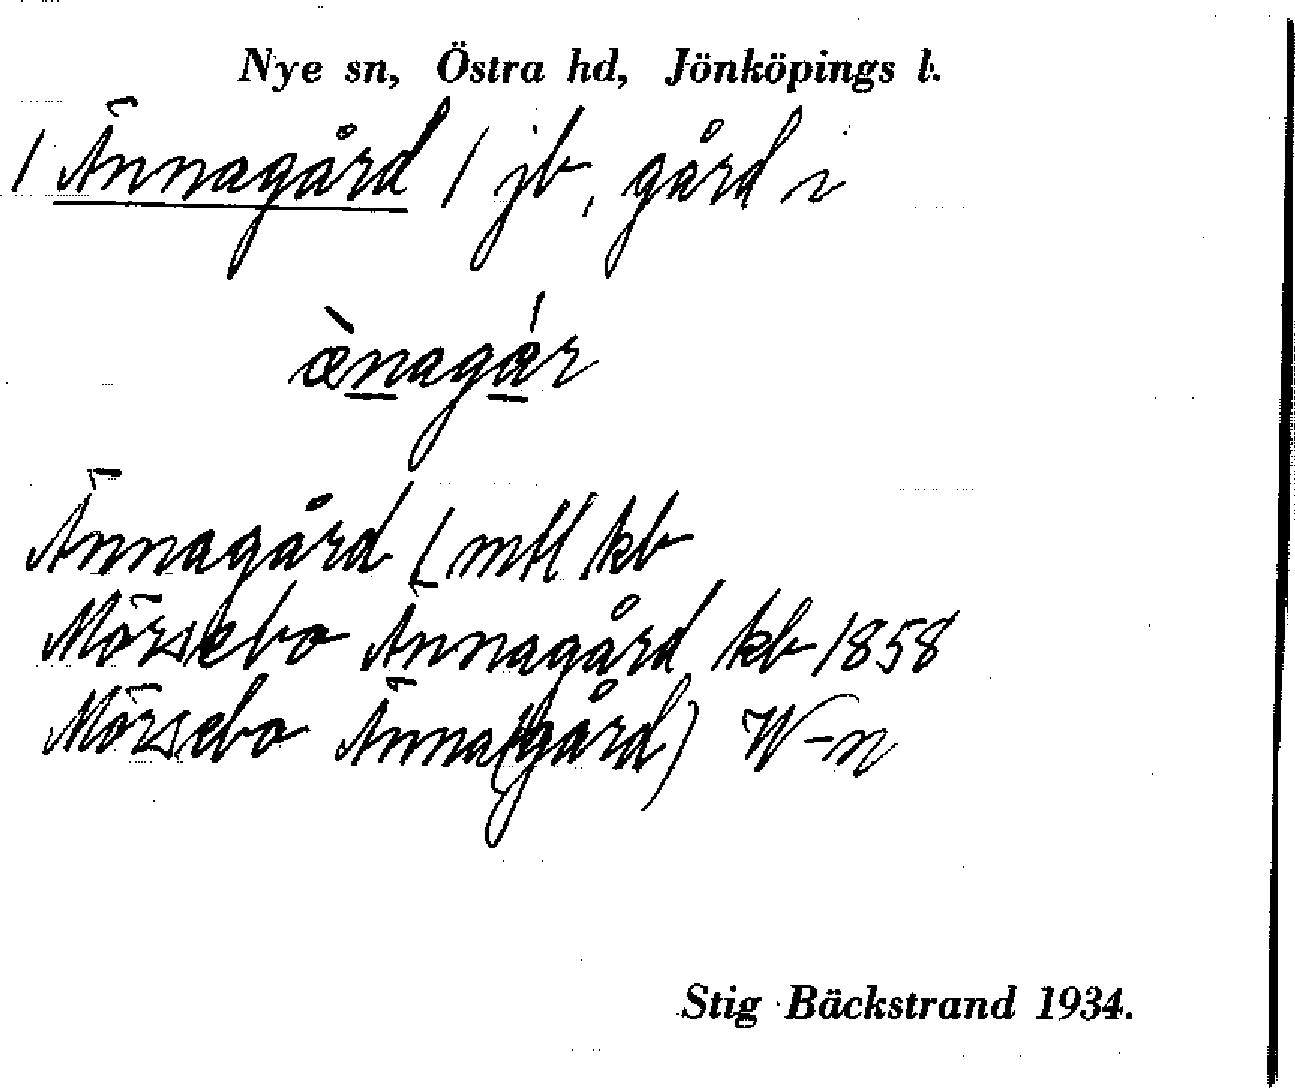 Nye sn, Östra hd, Jönköpings l.
/ Ännagård / jb, gård i
æ̀nagár
Ännagård / mtl kb
Mörsebo Ännagård kb 1858
Mörsebo Änna(gård) W-n
Stig Bäckstrand 1934.